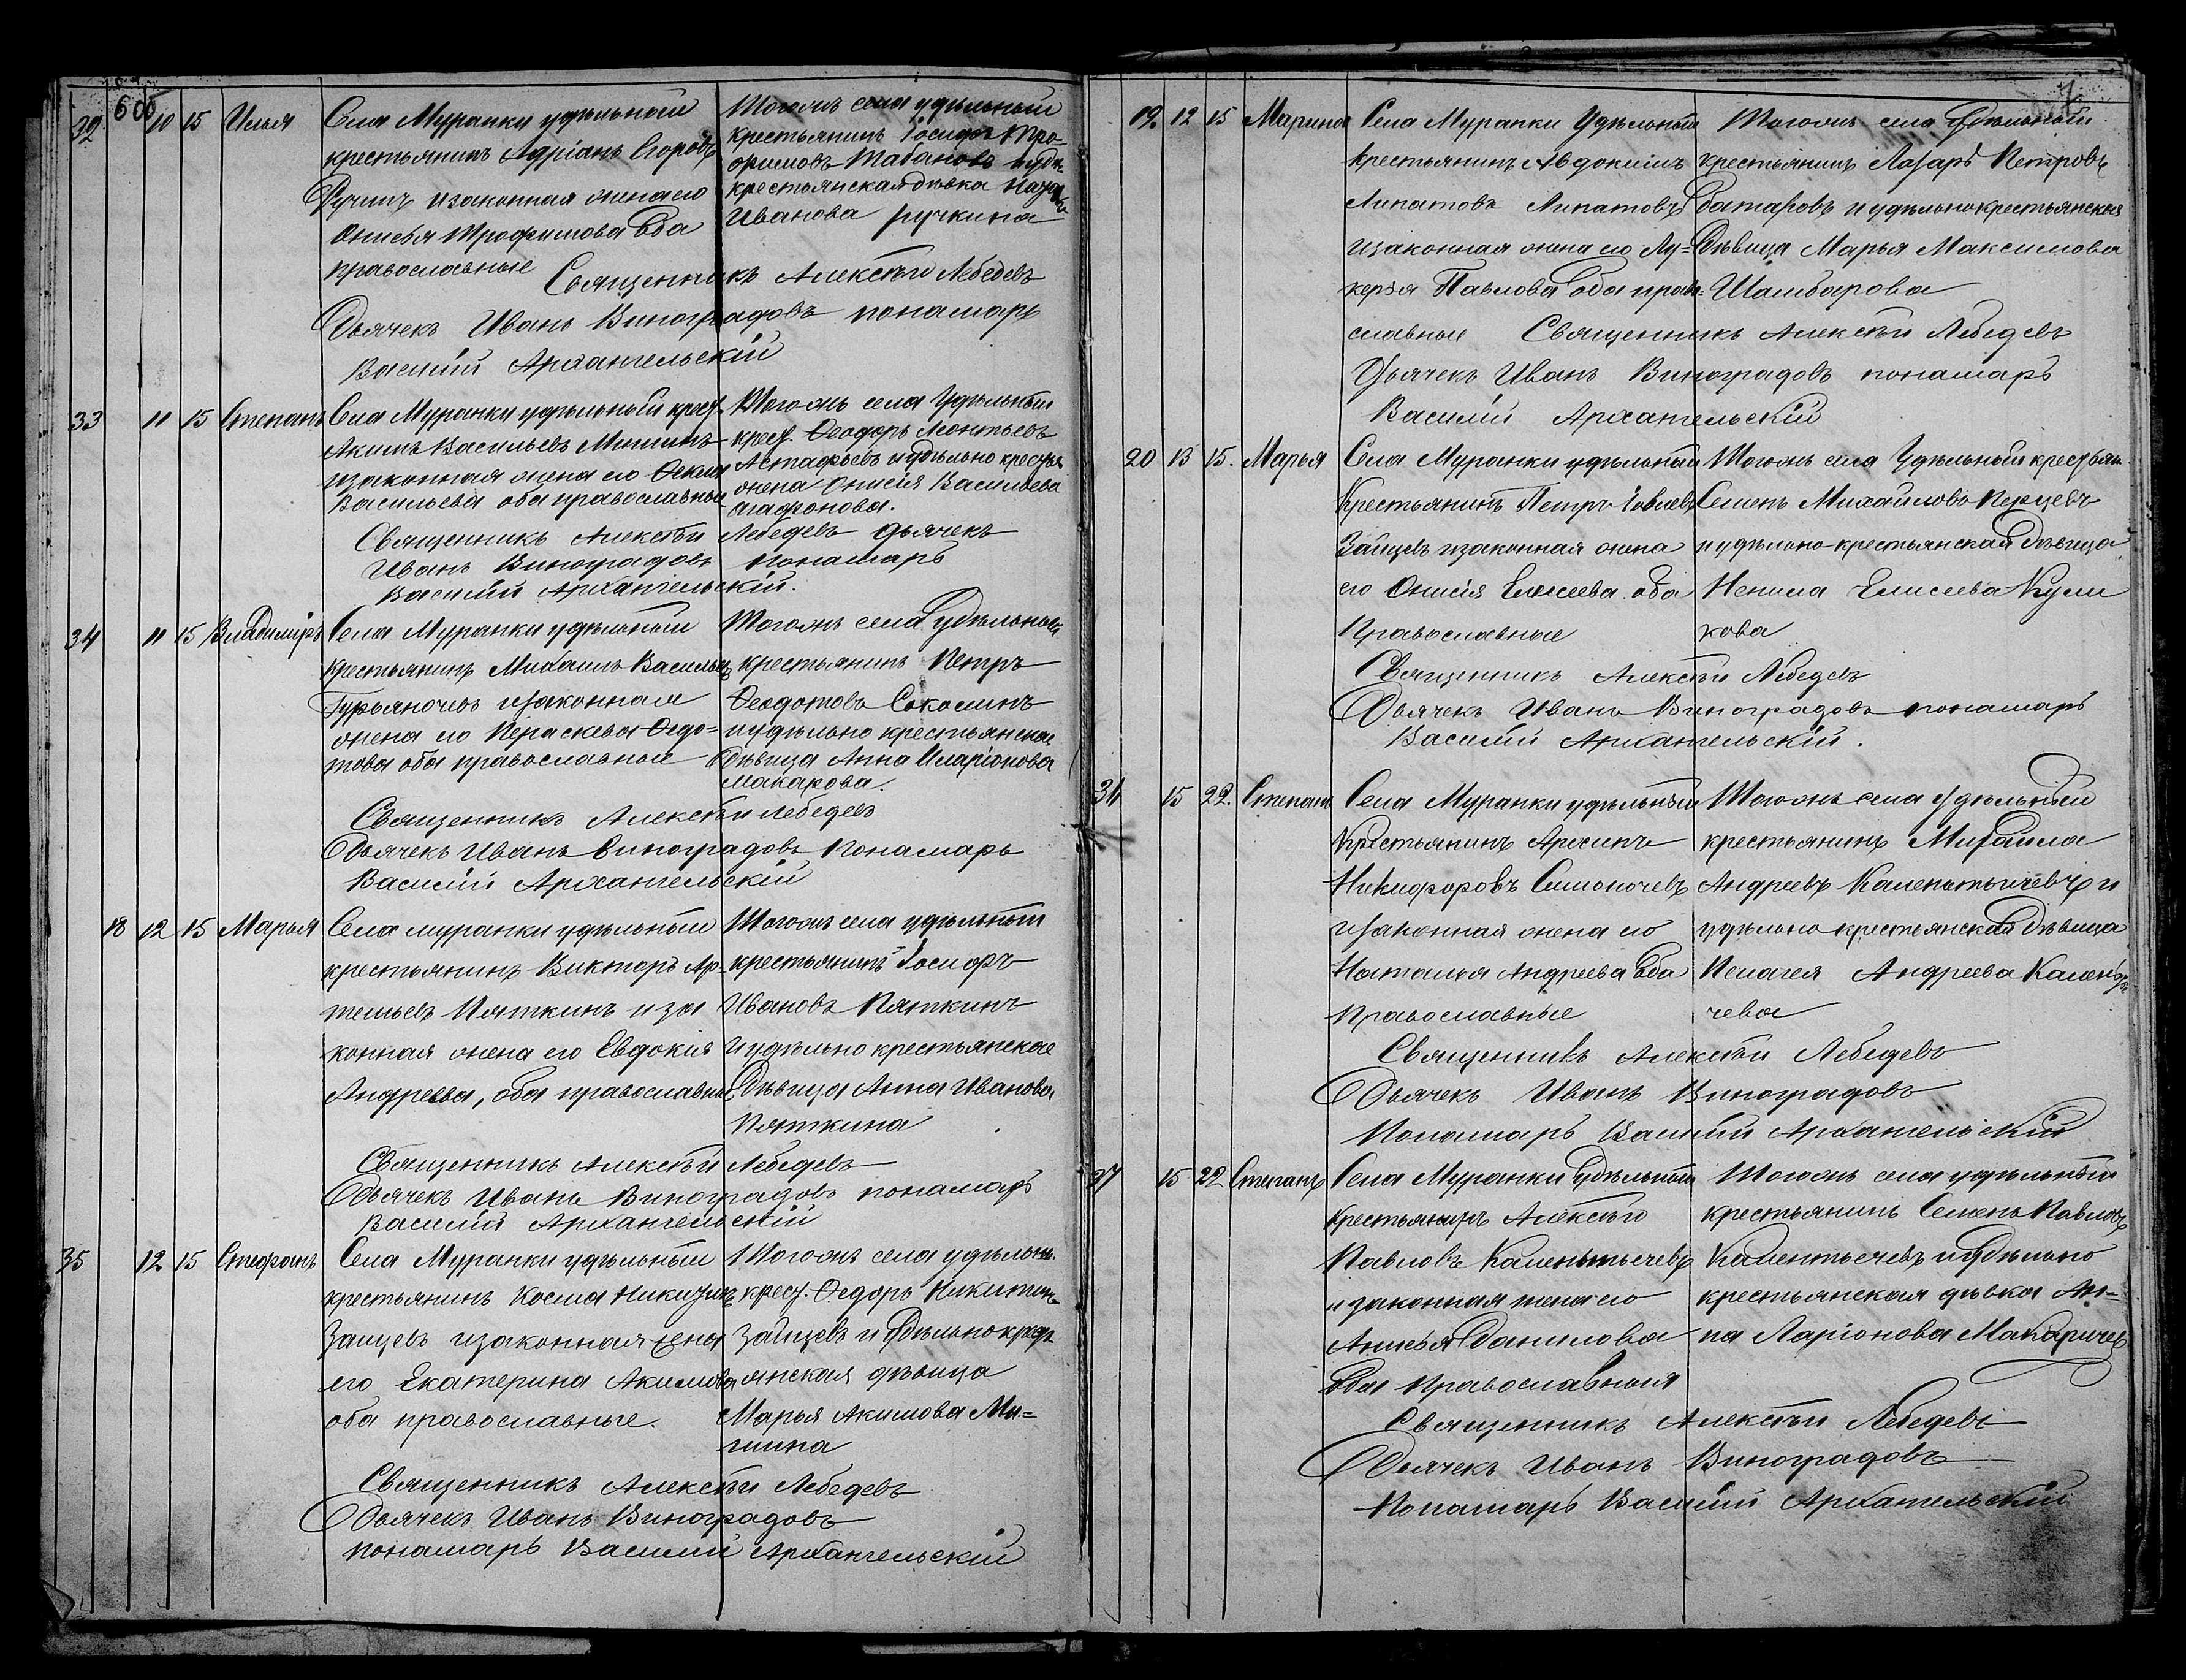 600
32 10 15 Илья Села Муранки удѣльный
крестьянинъ Адріанъ Егоровъ
Ручинъ и законная жена его
Онисья Трофимова оба
православные
Тогожъ села удѣльный
крестьянинъ Іосифъ Тро-
фимовъ Табаковъ
крестьянская дѣвка
Иванова Ручкина
Священникъ Алексѣй Лебедевъ
Дьячекъ Иванъ Виноградовъ пономарь
Василій Архангельскій
33 11 15 Степанъ Села Муранки удѣльный крест.
Акимъ Васильевъ Мишинъ
и законная жена его Ѳекла
Васильева оба православные
Тогожъ села Удѣльный
крест. Ѳеодоръ Леонтьевъ
Астафьевъ и удѣльно крестья
жена Онисія Васильева
Агафонова.
Священникъ Алексѣй Лебедевъ дьячекъ
Иванъ Виноградовъ пономарь
Василій Архангельскій.
34 11 15 Владиміръ Села Муранки удѣльный
крестьянинъ Михаилъ Васильевъ
Гурьяночевъ и законная
жена его Параскева Ѳедо-
това оба православные
Тогожъ села удѣльный
крестьянинъ Петръ
Ѳеодотовъ Соколинъ
и удѣльно крестьянская
дѣвица Анна Иларіонова
Макарова.
Священникъ Алексѣй Лебедевъ
Дьячекъ Иванъ Виноградовъ пономарь
Василій Архангельскій
18 12 15 Марья Села муранки удѣльный
крестьянинъ Викторъ Ар-
темьевъ Пяткинъ и за
конная жена его Евдокія
Андреева, оба православные
Тогожъ села удѣльный
крестьянинъ Іосифъ
Ивановъ Пяткинъ
и удѣльно крестьянская
дѣвица Анна Иванова
Пяткина
Священникъ Алексѣй Лебедевъ
Дьячекъ Иванъ Виноградовъ пономарь
Василій Архангельскій
35 12 15 Стефанъ Села Муранки удѣльный
крестьянинъ Косма
Заицевъ и законная жена
его Екатерина Акимова
оба православные.
Тогожъ села удѣльн.
крест. Ѳедоръ Никитинъ
Зайцевъ и удѣльно крест
янская дѣвица
Марья Акимова Ми-
шина
Священникъ Алексѣй Лебедевъ
Дьячекъ Иванъ Виноградовъ
пономарь Василій Архангельскій
19. 12 15 Марина Села Муранки Удѣльный
крестьянинъ Авдокимъ
Липатовъ Липатовъ
и законная жена его Лу-
керья Павлова оба право-
славные
Тогожъ села Удѣльный
крестьянинъ Лазарь Петровъ
Батаровъ и удѣльно крестьянская
дѣвица Марья Максимова
Шамбарова
Священникъ Алексѣй Лебедевъ
Дьячекъ Иванъ Виноградовъ пономарь
Василій Архангельскій
20 13 15. Марья Села Муранки удѣльный
Крестьянинъ Петръ Іовлевъ
Зайцевъ и законная жена
его Онисія Елисеева оба
Православные
Тогожъ села Удѣльный крестьян.
Семенъ Михайловъ Перцевъ
и удѣльно-крестьянская дѣвица
Ненила Елисеева Кули
кова
Священникъ Алексѣй Лебедевъ
Дьячекъ Иванъ Виноградовъ пономарь
Василій Архангельскій.
15 22. Степанъ Села Муранки удѣльный
Крестьянинъ Архипъ
Никифоровъ Симоночевъ
и законная жена его
Наталья Андреева оба
Православные
Тогожъ села удѣльный
крестьянинъ Михаила
Андреевъ Калентьичевъ и
удѣльно крестьянская дѣвица
Пелагея Андреева
чева
Священникъ Алексѣй Лебедевъ
Дьячекъ Иванъ Виноградовъ
Пономарь Василій Архангельскій
37 15 22 Степанъ Села Муранки Удѣльный
Крестьянинъ Алексѣй
Павловъ Каленьтьечевъ
и законная жена его
Анисья Данилова
оба Православныя
Тогожъ села удѣльный
крестьянинъ Семенъ Павловъ
Калентьечевъ и Удѣльно
крестьянская дѣвка Ан-
на Ларіонова Макаричев
Священникъ Алексѣй Лебедевъ
Дьячекъ Иванъ Виноградовъ
Пономарь Василій Архангельскій